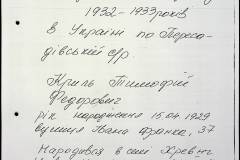 1932-1933 років
в Україні по Переса-
дівській с/р.
Криль Тимофій
Федорович
рік народження 15.04.1929
вулиця Івана Франка, 37
Народився в селі